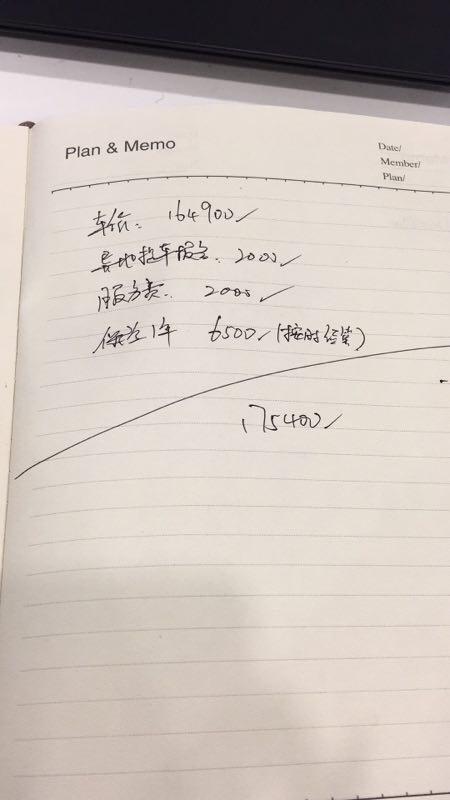 Plan & Memo
Date/
Member/
Plan/
车价: 164900/
异地提车报备. 2000/
服务费. 2000/
保险1年 6500/(按时结算)
175400/